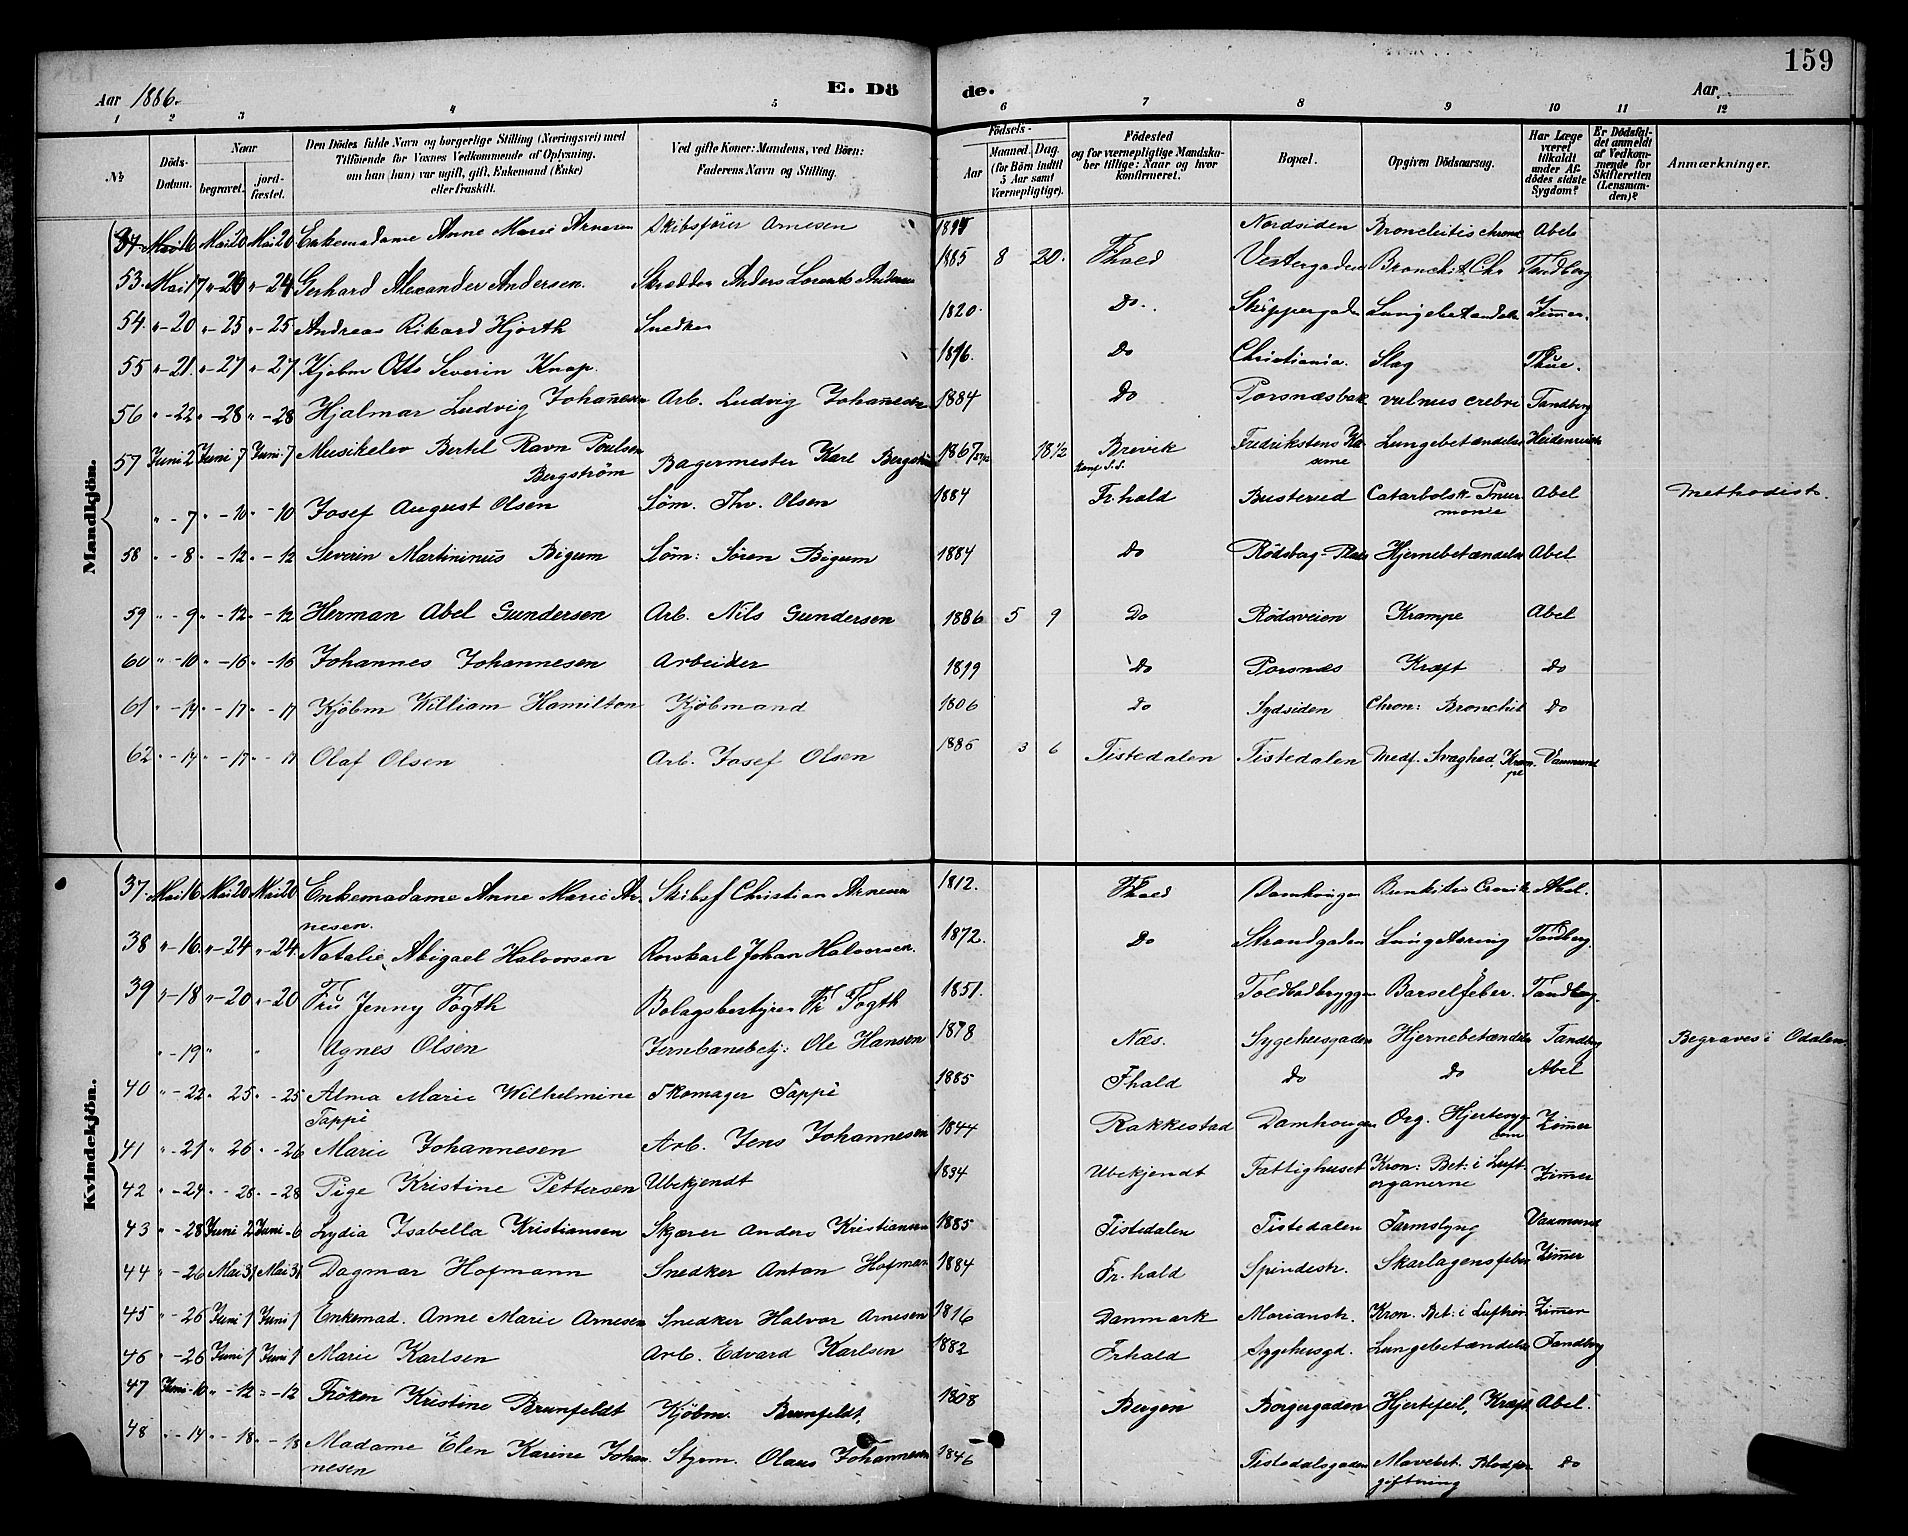 159
Aar 1886. E. Dö de. Aar
1 2 3 4 5 6 7 8 9 10 11 12
No. Döds-Datum. Naar begravet. jordfæstet. Den Dödes fulde Navn og borgerlige Stilling (Næringsvei) med Tilföiende for Voxnes Vedkommende af Oplysning, om han (hun) var ugift, gift, Enkemand (Enke) eller fraskilt. Ved gifte Koner: Mandens, ved Börn: Faderens Navn og Stilling. Födsels- Aar Maaned. Dag. (for Börn indtil 5 Aar samt Værnepligtige). Födested og for værnepligtige Mandskaber tillige: Naar og hvor konfirmeret. Bopæl. Opgiven Dödsaarsag. Har Læge været tilkaldt under Afdödes sidste Sygdom? Er Dödsfaldet anmeldt af Vedkommende for Skifteretten (Lensmanden)? Anmærkninger.
Mandkjön.
Mai 16 Mai 20 Mai 20 Enkemadame Anne Marie Arnesen Skibsförer Arnesen Nordsiden Bronchitis chron Abel
53. Mai 17 " - 24 " - 24 Gerhard Alexander Andersen. Skrædder Anders Lorents Andersen 1885 8 20. Fhald Vestergaden Bronchit Chr Tandberg
54 " - 20 " - 25 " - 25 Andreas Rikard Hjorth Snedker 1820. Do. Skippergaden Lungebetændelse Zimmer.
55 " - 21. " - 27 " - 27 Kjøbm Otto Severin Knap. 1816. Do Christiania. Slag Thue.
56 " - 22 " - 28 " - 28 Hjalmar Ludvig Johanesen Arb. Ludvig Johanesen 1884 Do Porsnæsbak vulnus crebri Tandberg
57 Juni 2 Juni 7 Juni 7 Musikelev Bertel Ravn Poulsen Bergström Bagermester Karl Bergström 1867 18 1/2 Brevik Fredrikstens Kaserne Lungebetændelse Heidenreich
" - 7 " - 10 " - 10 Josef August Olsen Söm. Thv. Olsen 1884 Fr.hald Busterud Catarbolsk Pneumonie Abel Methodist.
58 " - 8 " - 12 " - 12 Severin Martininus Bigum Söm: Sören Bigum 1884 Do Rödsbag-Plads Hjernebetændelse Abel
59 " - 9 " - 12 " - 12 Herman Abel Gundersen Arb. Nils Gundersen 1886 5 9 Do Rödsveien Krampe Abel
60 " - 10 " - 16 " - 16 Johannes Johannesen Arbeider 1819 Do Porsnæs Kræft Do
61 " - 14 " - 17 " - 17 Kjöbm William Hamilton Kjöbmand 1806 Do Sydsiden Chron: Bronchit Do
62 " - 14 " - 17 " - 17 Olaf Olsen Arb. Josef Olsen 1885 3 6 Tistedalen Tistedalen Medf. Svaghed, Krampe Vanmund
Kvindekjön.
37. Mai 16 Mai 20 Mai 20 Enkemadame Anne Marie Arnesen. Skibsf Christian Arnesen 1812. Fhald Damhougen Runkitis Cronik Abel.
38 " - 16. " - 24 " - 24. Natalie Abigael Halvorsen Rorskarl Johan Halvorsen. 1872. Do Strandgaden Lungetæring Tandberg.
39 " - 18 " - 20 " - 20 Fru Jenny Fogth Bolagsbestyrer Fr Fogth 1851. Toldbodbryggen Barselfeber. Tandberg.
" - 19 " " Agnes Olsen Jernbanebetj: Ole Hansen 1878 Næs. Sygehusgaden Hjernebetændelse Tandberg Begraves i Odalen
40 " - 22 " 25 " - 25 Alma Marie Wilhelmine Tappe Skomager Tappe 1885 Fhald Do Do Abel
41 " - 21 " 26 " - 26 Marie Johannesen Arb. Jens Johannesen 1844 Rakkestad Damhougen Org. Hjertesygdom Zimmer
42 " - 24 " - 28 " - 28 Pige Kristine Pettersen Ubekjendt 1834 Ubekjendt Fattighuset Kron: Bet: i Luftorganerne Zimmer
43 " - 28 Juni 2 Juni - 6 Lydia Isabella Kristiansen Skjærer Anders Kristiansen 1885 Tistedalen Tistedalen Tarmslyng Vanmund
44 " - 26 Mai 31 Mai 31 Dagmar Hofmann Snedker Anton Hofman 1884 Fr.hald Spindestr. Skarlagensfeber Zimmer
45 " - 26 Juni 1 Juni 1 Enkemad. Anne Marie Arnesen Snedker Halvor Arnesen 1816 Danmark Marianstr. Kron. Bet: i Luftrør Zimmer
46 " - 26 Juni 1 Juni 1 Marie Karlsen Arb. Edvard Karlsen 1882 Frhald Sygehusgd. Lungebetændelse Tandberg
47 Juni - 10 " - 12 " - 12 Fröken Kristine Brunfeldt Kjöbm. Brunfeldt. 1808 Bergen Borgergaden Hjertefeil, Kræft Abel.
48 " - 14 " - 18 " - 18 Madame Elen Karine Johannesen Styrm. Olaus Johannesen 1846 Tistedalsgaden Mavebet. Blodforgiftning Do